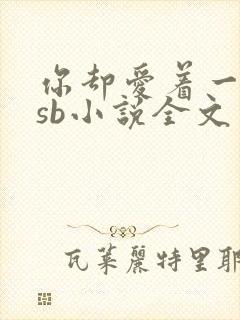 你却爱着一
sb小说全文
瓦莱丽特里耶